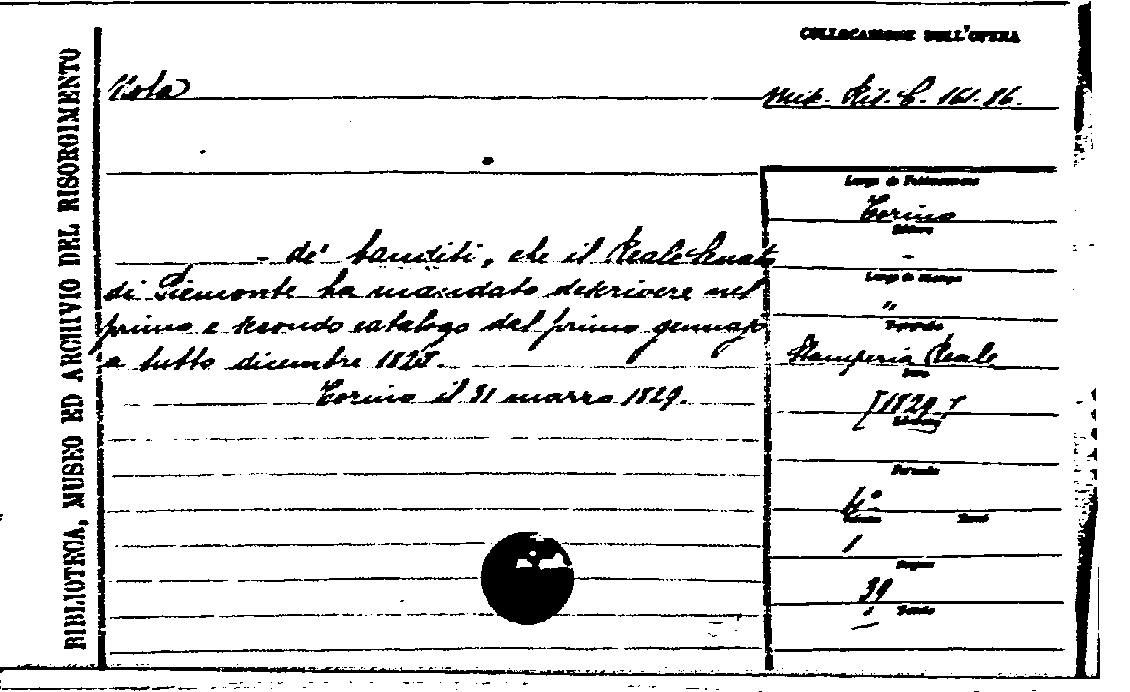 BIBLIOTECA, MUSEO ED ARCHIVIO DEL RISORGIMENTO
COLLOCAZIONE DELL'OPERA
Nota
161.86.
- de' banditi, che il Reale Senato
di Piemonte ha mandato descrivere nel
primo e secondo catalogo dal primo gennajo
a tutto dicembre 1828.
Torino il 31 marzo 1829.
Luogo di Pubblicazione
Torino
Editore
-
Luogo di stampa
"
Tipografia
Stamperia Reale
Data
[1829]
Edizione
Formato
4°
Volume
1
Pagine
39
Tavole